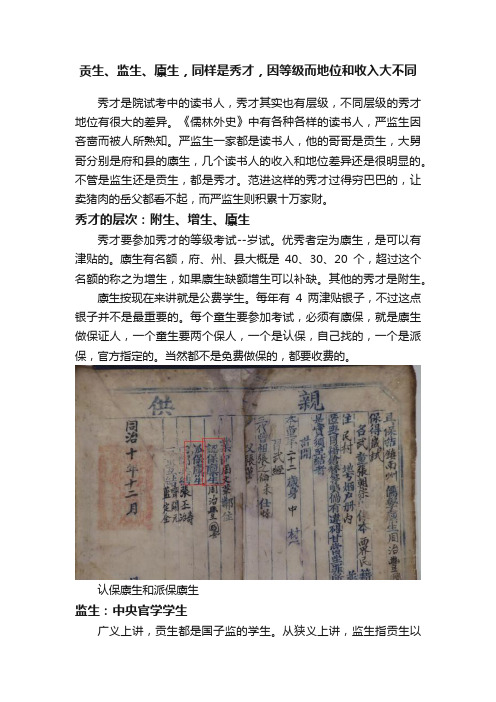 贡生、监生、廪生，同样是秀才，因等级而地位和收入大不同
秀才是院试考中的读书人，秀才其实也有层级，不同层级的秀才
地位有很大的差异。《儒林外史》中有各种各样的读书人，严监生因
吝啬而被人所熟知。严监生一家都是读书人，他的哥哥是贡生，大舅
哥分别是府和县的廪生，几个读书人的收入和地位差异还是很明显的。
不管是监生还是贡生，都是秀才。范进这样的秀才过得穷巴巴的，让
卖猪肉的岳父都看不起，而严监生则积累十万家财。
秀才的层次：附生、增生、廪生
秀才要参加秀才的等级考试--岁试。优秀者定为廪生，是可以有
津贴的。廪生有名额，府、州、县大概是 40、30、20 个，超过这个
名额的称之为增生，如果廪生缺额增生可以补缺。其他的秀才是附生。
廪生按现在来讲就是公费学生。每年有 4 两津贴银子，不过这点
银子并不是最重要的。每个童生要参加考试，必须有廪保，就是廪生
做保证人，一个童生要两个保人，一个是认保，自己找的，一个是派
保，官方指定的。当然都不是免费做保的，都要收费的。
親
供
同治十年十二月
认保廪生和派保廪生
监生：中央官学学生
广义上讲，贡生都是国子监的学生。从狭义上讲，监生指贡生以